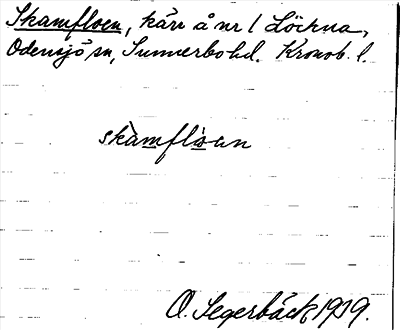 Skamfloen, kärr å nr 1 Löckna,
Odensjö sn, Sunnerbo hd. Kronob. l.
skàmflóen
O. Segerbäck 1919.